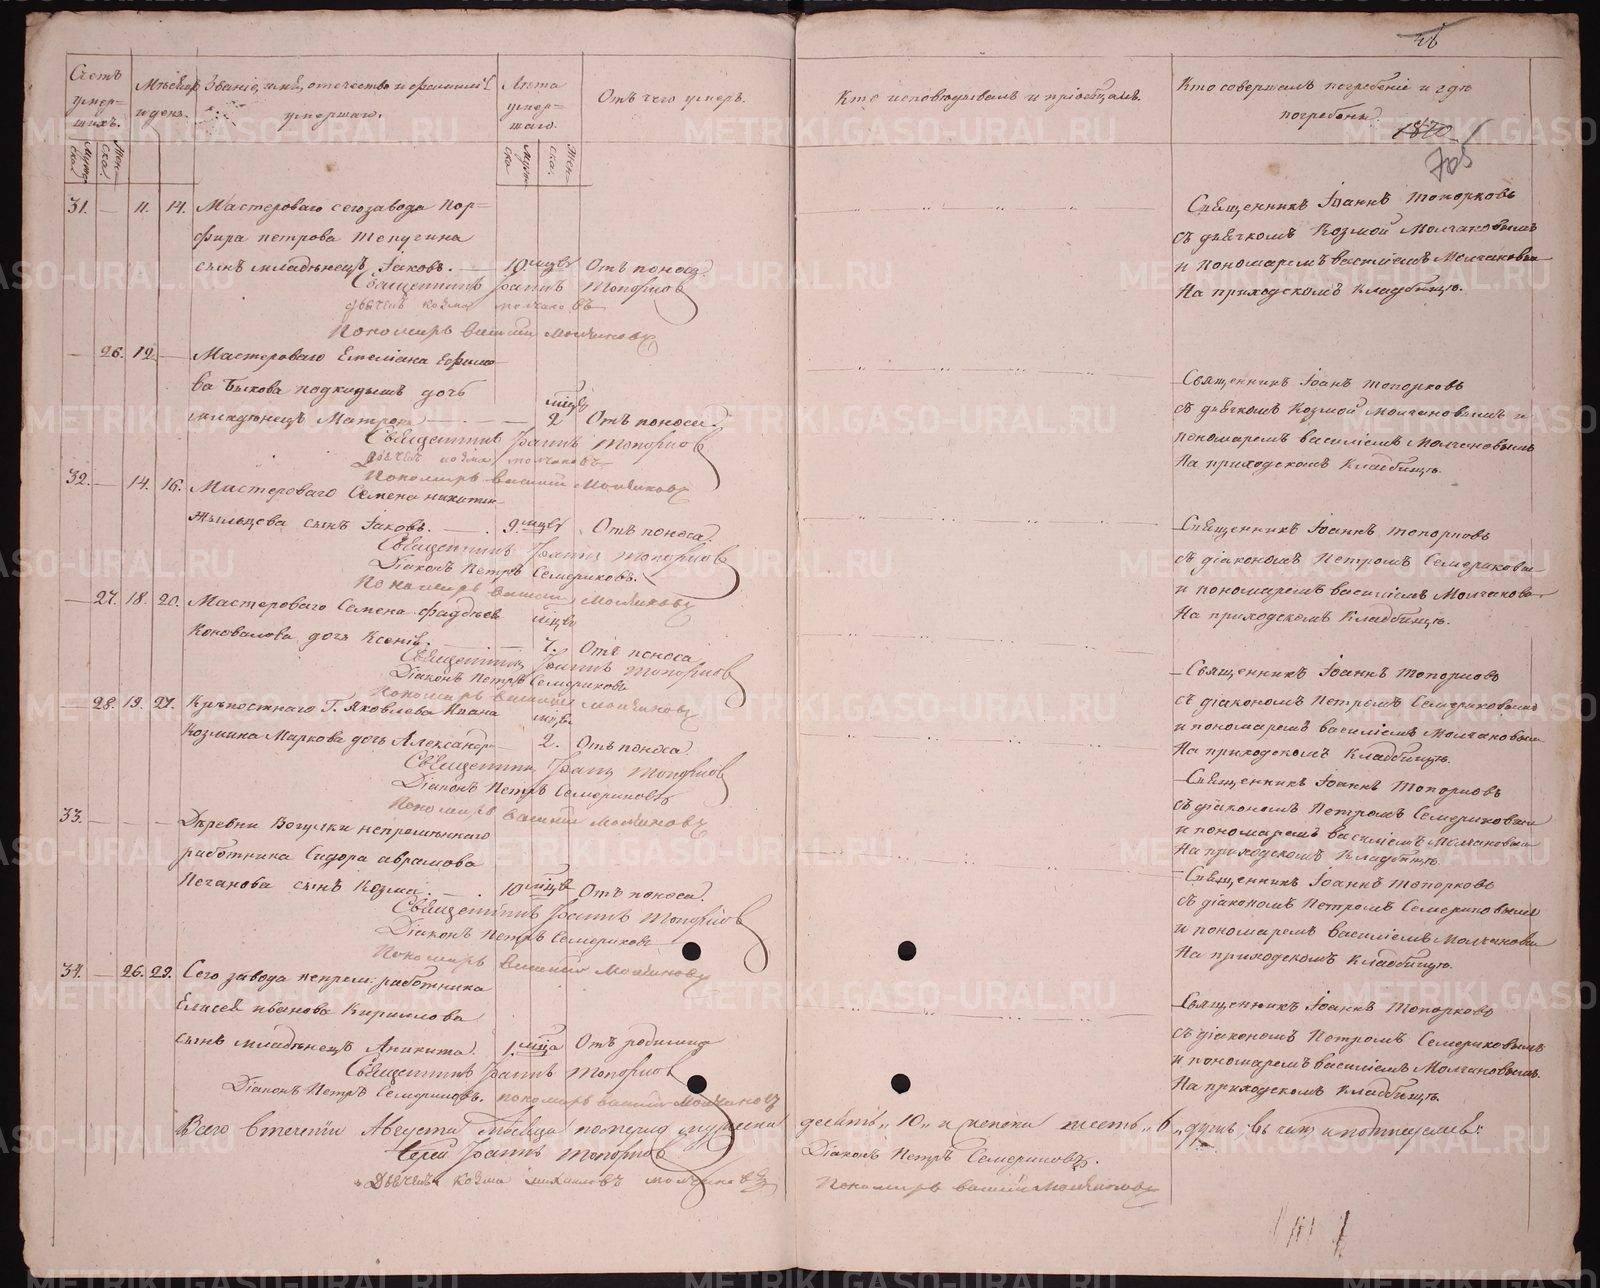 Счетъ умер-шихъ.
Мужеска
Женска
Мѣсяцъ и день.
Званіе, имя, отечество и фамилія умершаго.
Лѣта умер-шаго.
Мужеска
Женска.
Отъ чего умеръ.
Кто исповѣдывалъ и пріобщалъ.
Кто совершалъ погребеніе и гдѣ погребены.
1870
705
31. — 11. 14. Мастероваго сего завода Пор-
фира петрова
сынъ младенецъ Іаковъ. — 10 мцвъ Отъ поноса.
Священникъ Іоаннъ Топорковъ
дьячекъ козма молчановъ
Пономарь василій Молчановъ
Священникъ Іоаннъ Топорковъ
съ дьячкомъ Козмой Молчановымъ
и пономаремъ василіемъ Молчановы
На приходскомъ кладбищѣ.
— 26. 12. — Мастероваго Емеліана Ефимо
ва Быкова подкидышъ дочь
младенецъ Матрона — мцъ 2 Отъ поноса.
Священникъ Іоаннъ Топорковъ
дьячекъ козма молчановъ
Пономарь василій Молчановъ
Священникъ Іоанъ топорковъ
съ дьячкомъ Козмой молчановымъ и
пономаремъ василіемъ молчановымъ
На приходскомъ кладбищѣ.
32. — 14. 16. Мастероваго Семена никитин
сынъ Іаковъ. — 9 мцвъ Отъ поноса.
Священникъ Іоаннъ Топорковъ
Діаконъ Петръ Семериковъ.
Пономарь василій Молчановъ
Священникъ Іоаннъ топорковъ
съ діакономъ Петромъ Семериковы
и пономаремъ василіемъ Молчанов
На приходскомъ кладбищѣ.
— 27. 18. 20. Мастероваго Семена фадѣева
Коновалова дочь Ксенія. — мцвъ 7. Отъ поноса
Священникъ Іоаннъ Топорковъ
Діаконъ Петръ Семериковъ
Пономарь василій Молчановъ
Священникъ Іоаннъ топорковъ
съ діакономъ Петромъ Семериковымъ
и пономаремъ василіемъ Молчановы
На приходскомъ кладбищѣ.
— 28. 19. 21. Крѣпостнаго Г. Яковлева Ивана
Козмина Маркова дочь Александр — мцва 2. Отъ поноса
Священникъ Іоаннъ Топорковъ
Діаконъ Петръ Семериковъ
Пономарь василій Молчановъ
Священникъ Іоаннъ Топорковъ
съ діакономъ Петромъ Семериковым
и пономаремъ василіемъ Молчановы
На приходскомъ кладбищѣ.
33. — — — Деревни Вогулки непремѣннаго
работника Сидора аврамова
сынъ Козма. — 10 мцвъ Отъ поноса.
Священникъ Іоаннъ Топорковъ
Діаконъ Петръ Семериковъ
Пономарь василій Молчановъ
Священникъ Іоаннъ топорковъ
съ діакономъ Петромъ Семериковымъ
и пономаремъ василіемъ Молчановы
На приходскомъ кладбищѣ.
34. — 26. 29. Сего завода непрем: работника
Елисея иванова Кирилова
сынъ младенецъ Аникита. 1. мца Отъ родимца
Священникъ Іоаннъ Топорковъ
Діаконъ Петръ Семериковъ. пономарь василій Молчановъ
Священникъ Іоаннъ топорковъ
съ діакономъ Петромъ Семериковымъ
и пономаремъ василіемъ Молчановымъ.
На приходскомъ кладбищѣ.
Всего втеченіи Августа Мѣсяца померло мужеска десять „10„ и женска шесть „6„ душъ
Іерей Іоаннъ Топорковъ
Діаконъ Петръ Семериковъ.
Дьячекъ козма михаиловъ молчановъ
Пономарь василій Молчановъ
METRIKI.GASO-URAL.RU